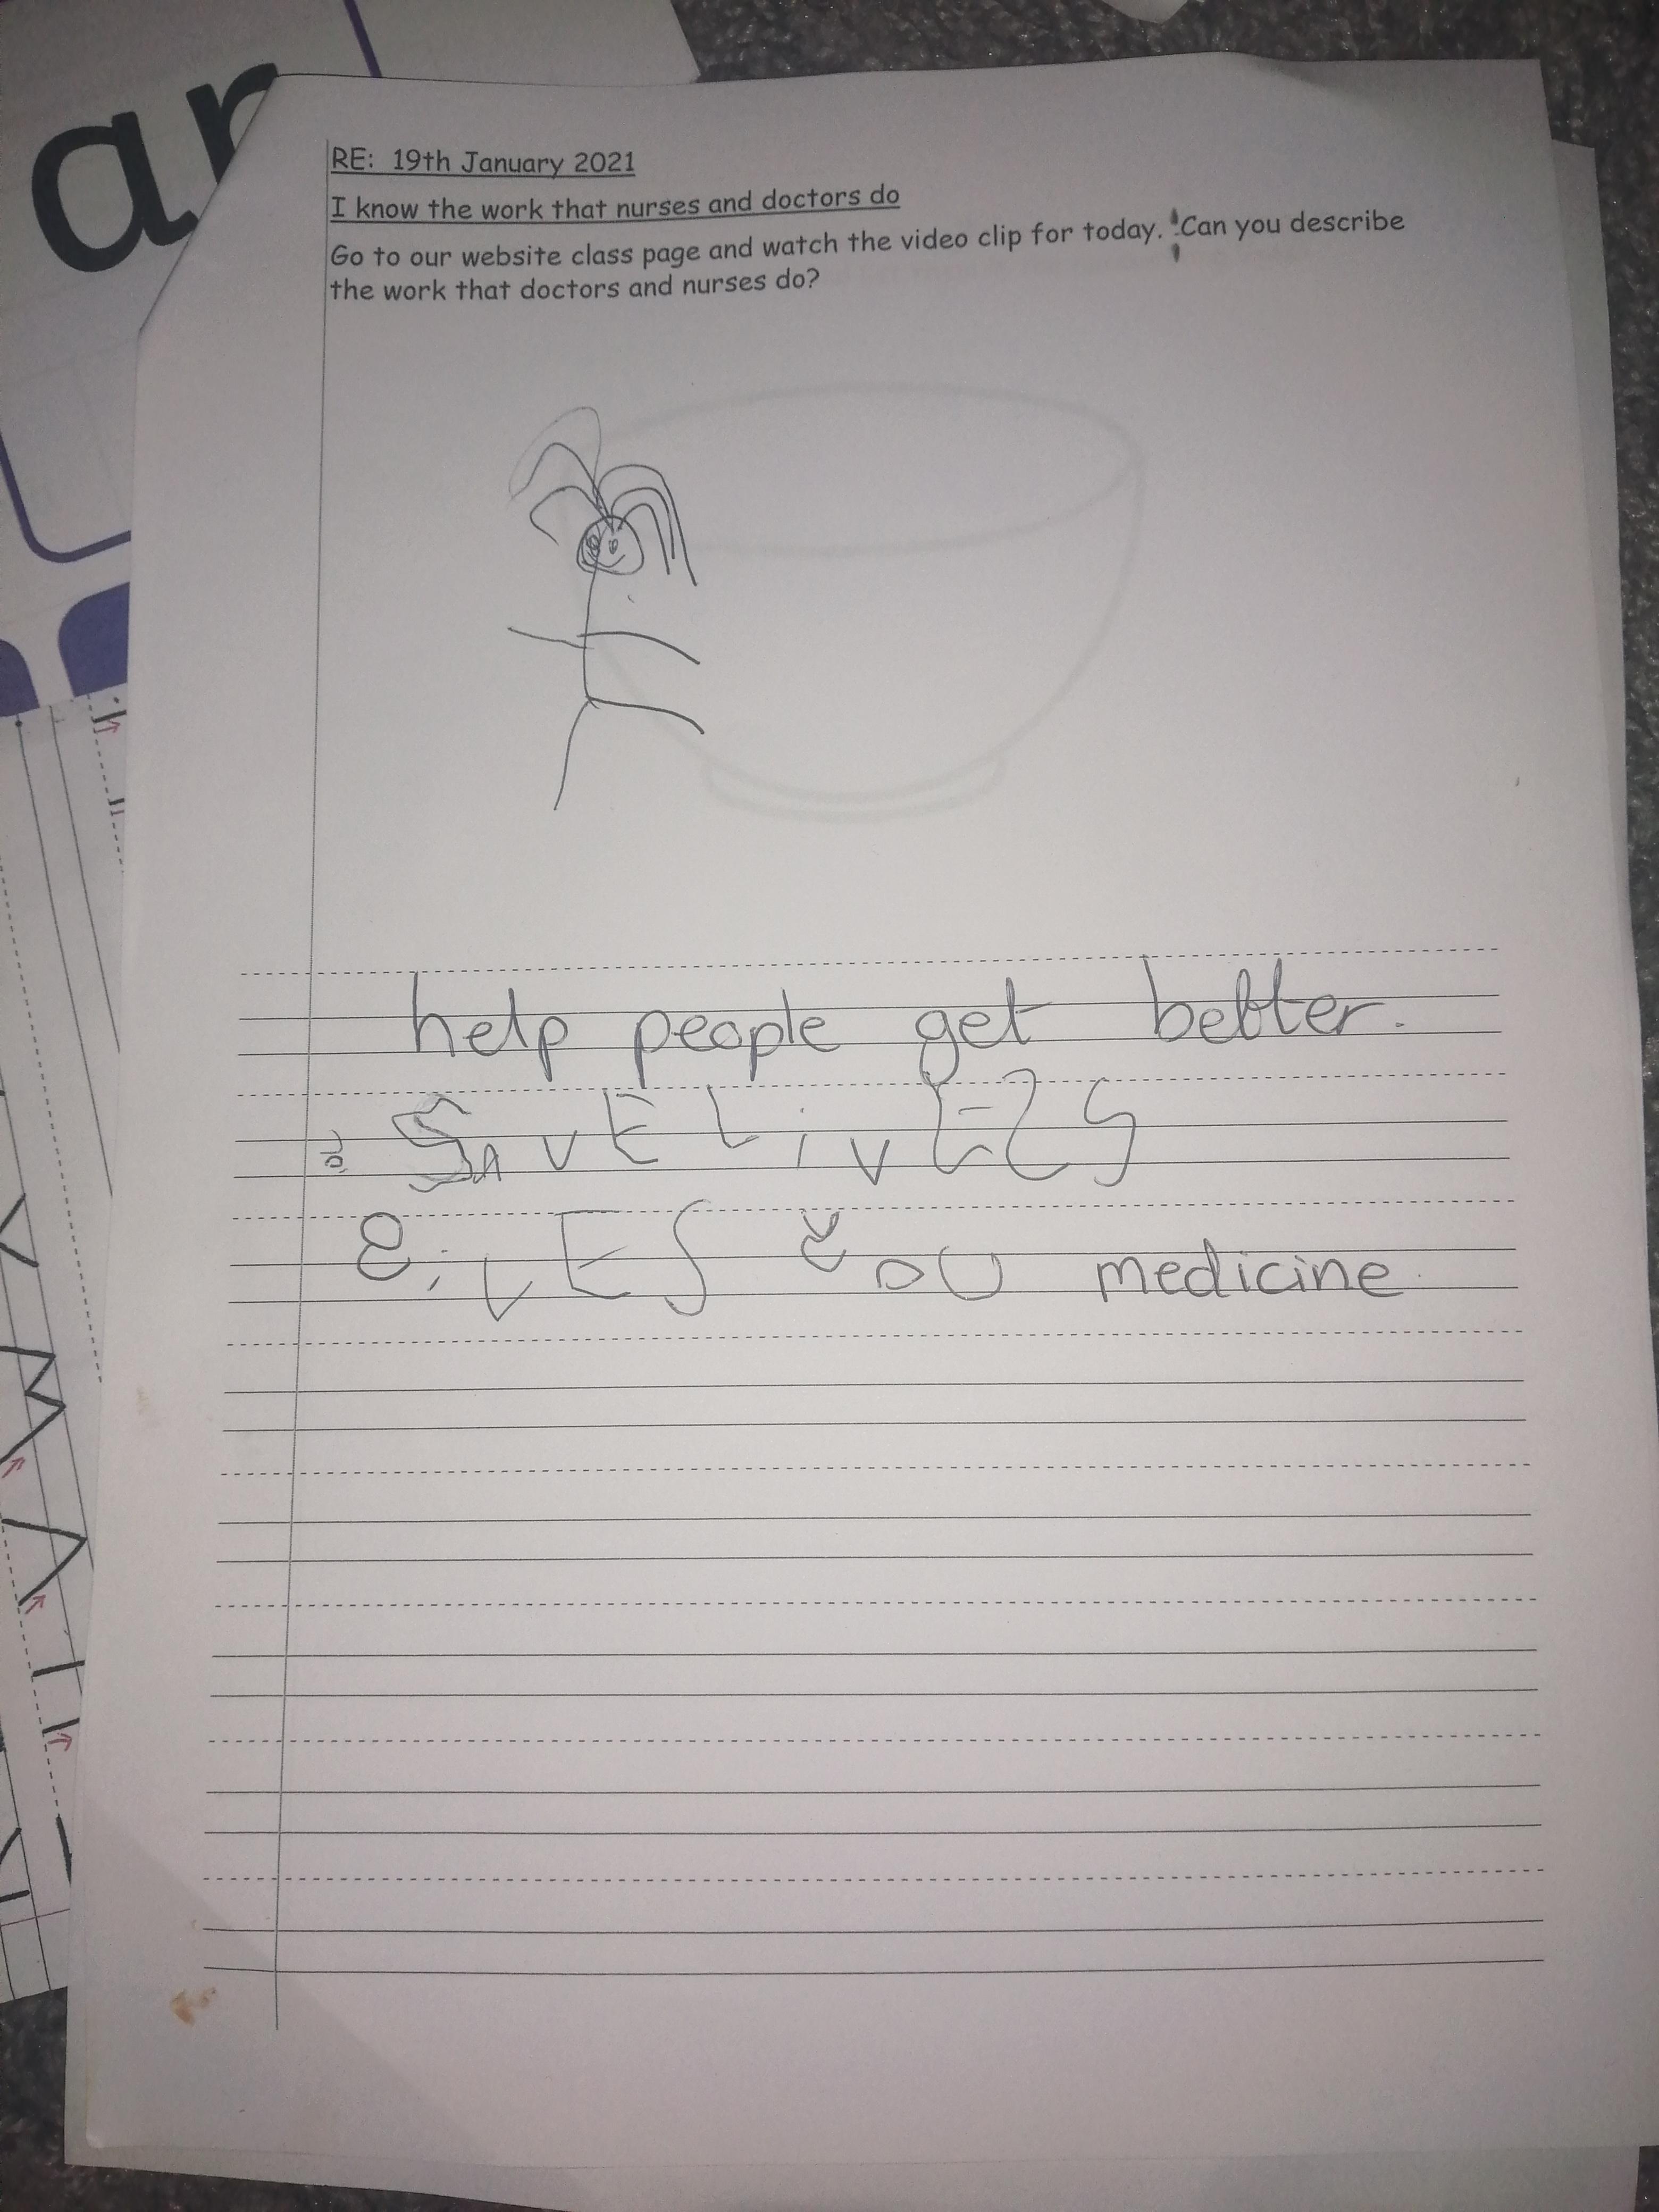 ar
RE: 19th January 2021
I know the work that nurses and doctors do
Go to our website class page and watch the video clip for today. Can you describe
the work that doctors and nurses do?
help people get better.
SAvE LivES
givES YoU medicine